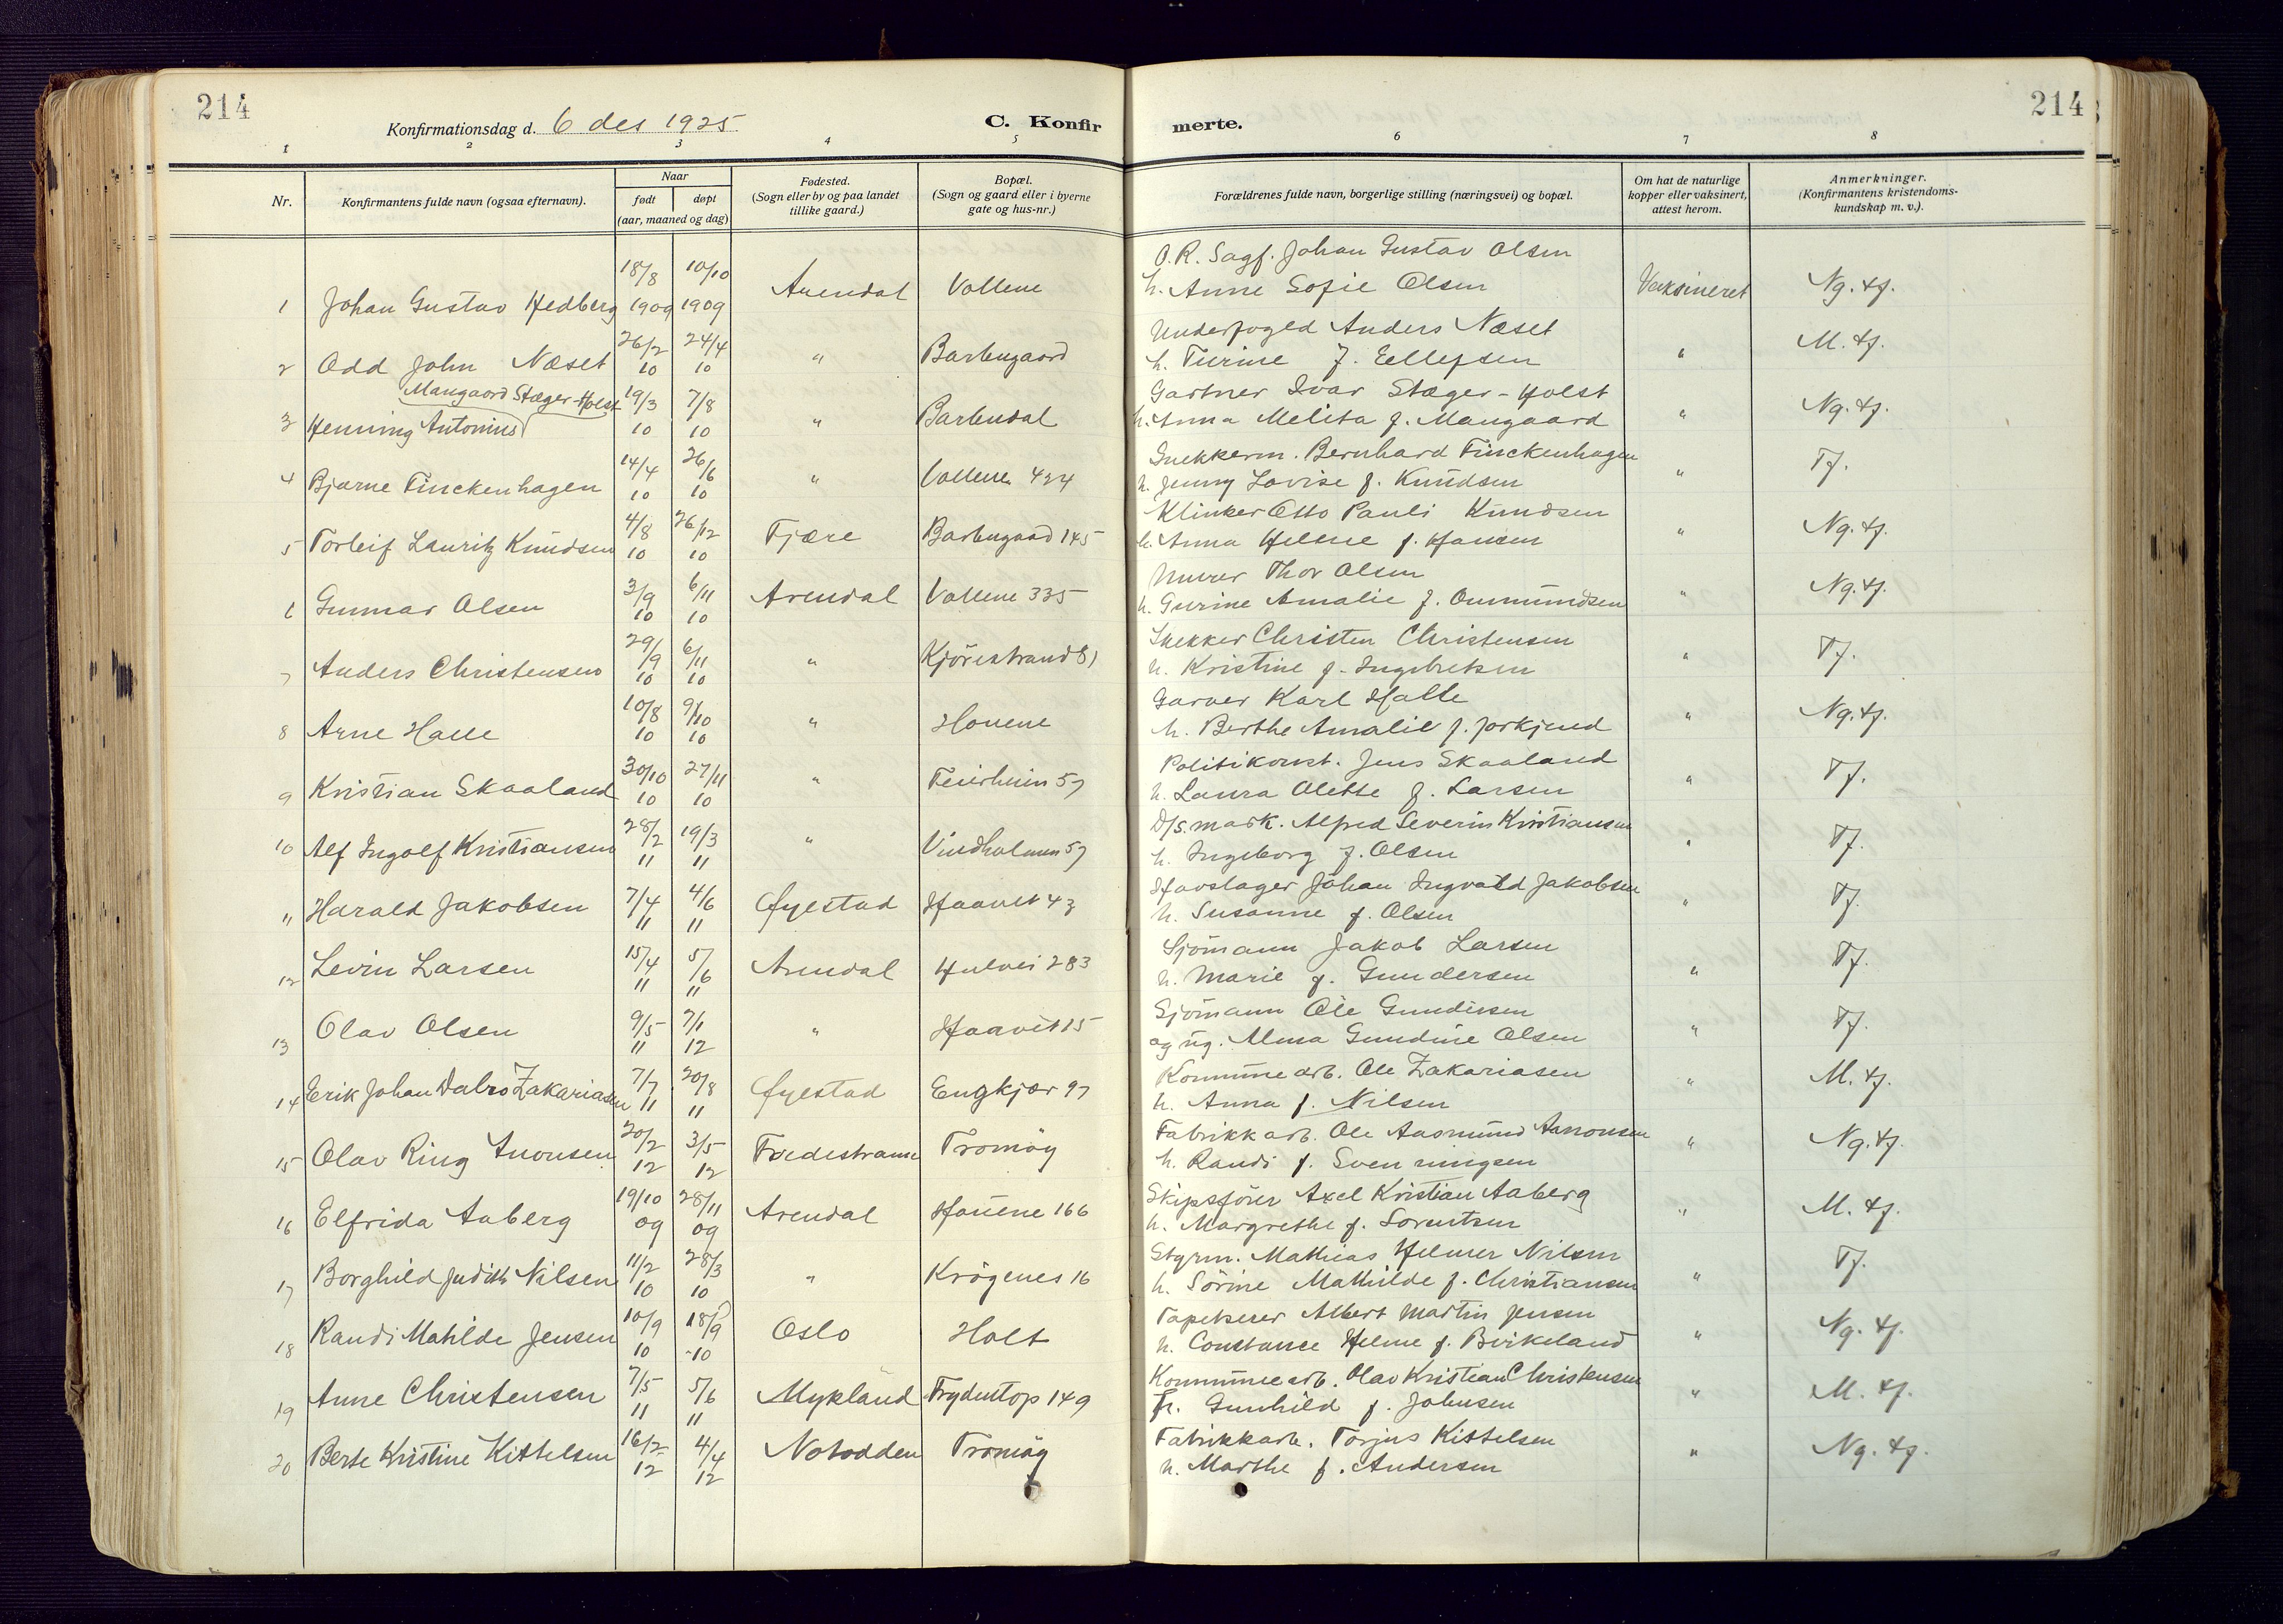 214
214
Konfirmationsdag d. 6 des 1925
C. Konfir
merte.
1 2 3 4 5 6 7 8
Nr.
Konfirmantens fulde navn (ogsaa efternavn).
Naar
født
døpt
(aar, maaned og dag)
Fødested.
(Sogn eller by og paa landet
tillike gaard.)
Bopæl.
(Sogn og gaard eller i byerne
gate og hus-nr.)
Forældrenes fulde navn, borgerlige stilling (næringsvei) og bopæl.
Om hat de naturlige
kopper eller vaksinert,
attest herom.
Anmerkninger.
(Konfirmantens kristendoms-
kundskap m. v.).
O.R. Sagf. Johan Gustav Olsen
1 Johan Gustav Hedberg 18/8 1909 10/10 1909 Arendal Vollene h. Anne Sofie Olsen Vaksineret Ng. tf.
Underfoged Anders Næset
2 Odd John Næset 26/2 10 24/4 10 " Barbugaard h. Turine f. Ellefsen " M. tf.
Mangaard Stæger-Holst
Gartner Ivar Stæger-Holst
3 Henning Antonius 19/3 10 7/8 10 " Barbudal h. Anna Melita f. Mangaard " Ng. tf.
Snekkerm. Bernhard Finckenhagen
4 Bjarne Finckenhagen 14/4 10 26/6 10 " Vollene 424 h. Jenny Lovise f. Knudsen " Tf.
Klinker Otto Pauli Knudsen
5 Torleif Lauritz Knudsen 4/8 10 26/12 10 Fjære Barbugaard 145 h. Anna Helene f. Hansen " Ng. tf.
Murer Thor Olsen
6 Gunnar Olsen 3/9 10 6/11 10 Arendal Vollene 335 h. Gurine Amalie f. Ommundsen " Ng. tf.
Snekker Christen Christensen
7 Anders Christensen 29/9 10 6/11 10 " Kjörestrand 81 h. Kristine f. Ingebretsen " Tf.
Garver Karl Halle
8 Arne Halle 10/8 10 9/10 10 " Houene h. Berthe Amalie f. Jorkjend " Ng. tf.
Politikonst. Jens Skaaland
9 Kristian Skaaland 30/10 10 27/11 10 " Feierheim 57 h. Laura Olette f. Larsen " Tf.
D/s. mask. Alfred Severin Kristiansen
10 Alf Ingolf Kristiansen 28/2 11 19/3 11 " Vindholmen 57 h. Ingeborg f. Olsen " Tf.
Havslager Johan Ingvald Jakobsen
11 Harald Jakobsen 7/4 11 4/6 11 Øyestad Haavet 43 h. Susanne f. Olsen " Tf.
Sjömann Jakob Larsen
12 Levin Larsen 15/4 11 5/6 11 Arendal Hulvei 283 h. Marie f. Gundersen " Tf.
Sjömann Ole Gundersen
13 Olav Olsen 9/5 11 7/1 12 " Haavet 15 og ug. Alma Gundine Olsen " Tf.
Kommunearb. Ole Zakariasen
14 Erik Johan Dalbo Zakariasen 7/7 11 20/8 11 Øyestad Engkjær 97 h. Anna f. Nilsen " M. tf.
Fabrikkarb. Ole Aasmund Aanonsen
15 Olav Ring Anonsen 20/2 12 3/5 12 Tvedestrand Tromöy h. Randi f. Svenningsen " Ng. tf.
Skipsförer Axel Kristian Aaberg
16 Elfrida Aaberg 19/10 09 28/11 09 Arendal Houene 166 h. Margrethe f. Sorentsen " M. tf.
Styrm. Mathias Helmer Nilsen
17 Borghild Judith Nilsen 11/2 10 28/3 10 " Krögenes 16 h. Sörine Mathilde f. Christiansen " Tf.
Tapetserer Albert Martin Jensen
18 Randi Matilde Jensen 10/9 10 18/9 10 Oslo Holt h. Constance Helene f. Birkeland " Ng. tf.
Kommunearb. Olav Kristian Christensen
19 Anne Christensen 7/5 11 5/6 11 Mykland Frydentop 149 h. Gunhild f. Johnsen " M. tf.
Fabrikkarb. Torjus Kittelsen
20 Berte Kristine Kittelsen 16/2 12 4/4 12 Notodden Tromöy h. Marthe f. Andersen " Ng. tf.